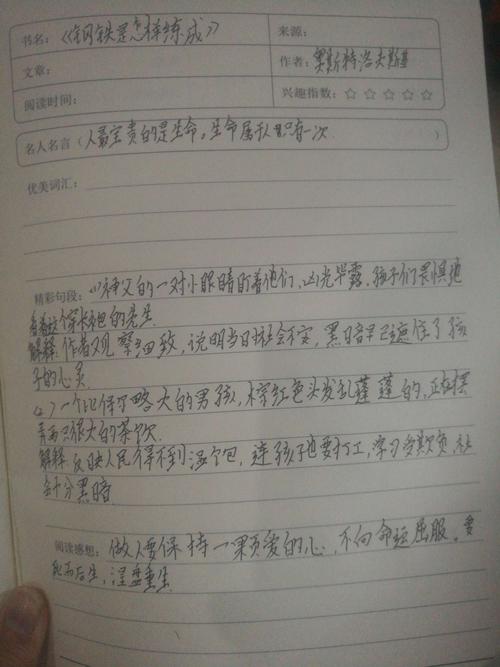 书名：《钢铁是怎样练成》
来源：
文章：
作者：奥斯特洛夫斯基
阅读时间：
兴趣指数：☆ ☆ ☆ ☆ ☆
名人名言（人最宝贵的是生命。生命属于人只有一次 ）
优美词汇：
精彩句段：(1)神父的一对小眼睛盯着他们，凶光毕露。孩子们畏惧地
看着这个穿长袍的先生
解释：作者观察细致，说明当日社会不安，黑暗早已遮住了孩
子的心灵
(2)一个比保尔略大的男孩，棕红色头发乱蓬蓬的，正在摆
弄两只很大的茶炊
解释 反映人民得不到温饱，连孩子也要打工，学习多欺负 社
会十分黑暗
阅读感想：做人要保持一颗爱的心，不向命运屈服。要
死而后生，涅盘重生